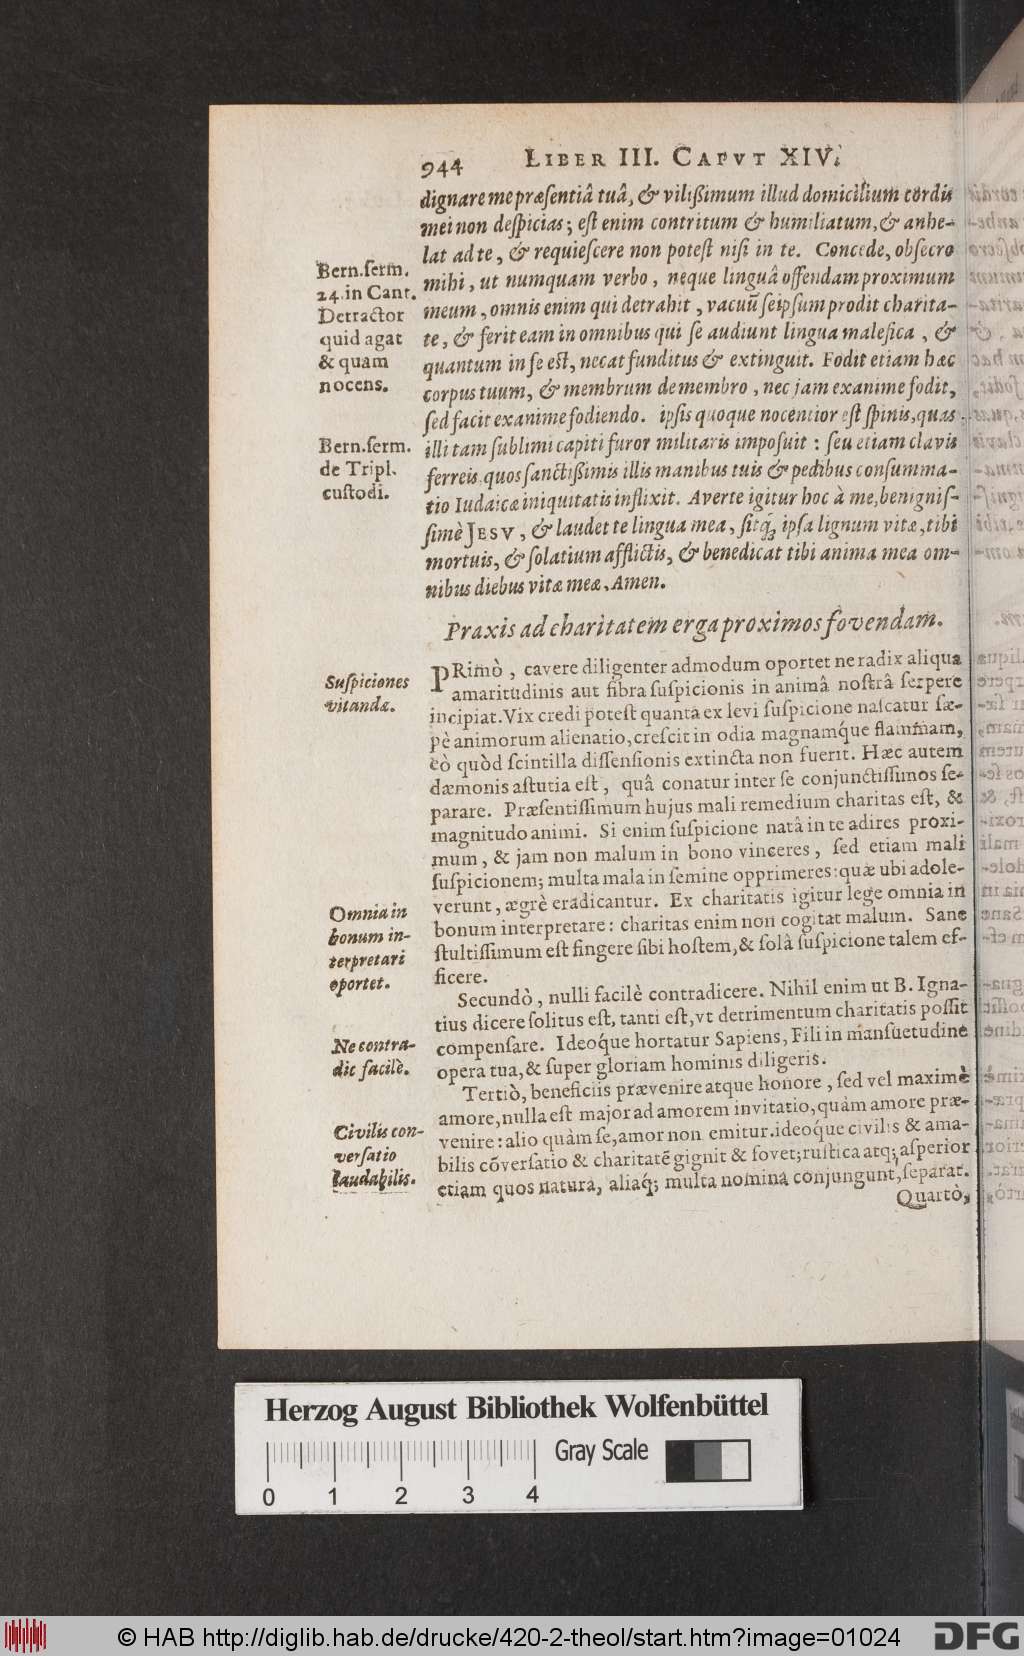 944 LIBER III. CAPVT XIV.
dignare me præsentiâ tuâ, & vilißimum illud domicilium cordis
mei non despicias; est enim contritum & humiliatum, & anhe-
lat ad te, & requiescere non potest nisi in te. Concede, obsecro
mihi, ut numquam verbo, neque linguâ offendam proximum
meum, omnis enim qui detrahit, vacuũ seipsum prodit charita-
te, & ferit eam in omnibus qui se audiunt lingua malefica, &
quantum in se est, necat funditus & extinguit. Fodit etiam hæc
corpus tuum, & membrum de membro, nec jam exanime fodit,
sed facit exanime fodiendo. ipsis quoque nocentior est spinis, quas
illi tam sublimi capiti furor militaris imposuit: seu etiam clavis
ferreis, quos sanctißimis illis manibus tuis & pedibus consumma-
tio Iudaicæ iniquitatis inflixit. Averte igitur hoc à me, benignis-
simè JESV, & laudet te lingua mea, sitq́ꝫ ipsa lignum vitæ, tibi
mortuis, & solatium afflictis, & benedicat tibi anima mea om-
nibus diebus vitæ meæ, Amen.
Bern. serm.
24. in Cant.
Detractor
quid agat
& quam
nocens.
Bern. serm.
de Tripl.
custodi.
Praxis ad charitatem erga proximos fovendam.
PRimò, cavere diligenter admodum oportet ne radix aliqua
amaritudinis aut fibra suspicionis in animâ nostrâ serpere
incipiat. Vix credi potest quanta ex levi suspicione nascatur sæ-
pè animorum alienatio, crescit in odia magnamq́ue flammam,
eò quòd scintilla dissensionis extincta non fuerit. Hæc autem
dæmonis astutia est, quâ conatur inter se conjunctissimos se-
parare. Præsentissimum hujus mali remedium charitas est, &
magnitudo animi. Si enim suspicione natâ in te adires proxi-
mum, & jam non malum in bono vinceres, sed etiam mali
suspicionem; multa mala in semine opprimeres: quæ ubi adole-
verunt, ægrè eradicantur. Ex charitatis igitur lege omnia in
bonum interpretare: charitas enim non cogitat malum. Sane
stultissimum est fingere sibi hostem, & solâ suspicione talem ef-
ficere.
Suspiciones
vitandæ.
Omnia in
bonum in-
terpretari
oportet.
Secundò, nulli facilè contradicere. Nihil enim ut B. Igna-
tius dicere solitus est, tanti est, vt detrimentum charitatis possit
compensare. Ideoque hortatur Sapiens, Fili in mansuetudine
opera tua, & super gloriam hominis diligeris.
Ne contra-
dic facilè.
Tertiò, beneficiis prævenire atque honore, sed vel maximè
amore, nulla est major ad amorem invitatio, quàm amore præ-
venire: alio quàm se, amor non emitur. ideoq́ue civilis & ama-
bilis cõversatio & charitatẽ gignit & fovet; rustica atqꝫ asperior
etiam quos natura, aliaqꝫ multa nomina conjungunt, separat.
Civilis con-
versatio
laudabilis.
Quartò,
Herzog August Bibliothek Wolfenbüttel
Gray Scale
0 1 2 3 4
© HAB http://diglib.hab.de/drucke/420-2-theol/start.htm?image=01024
DFG